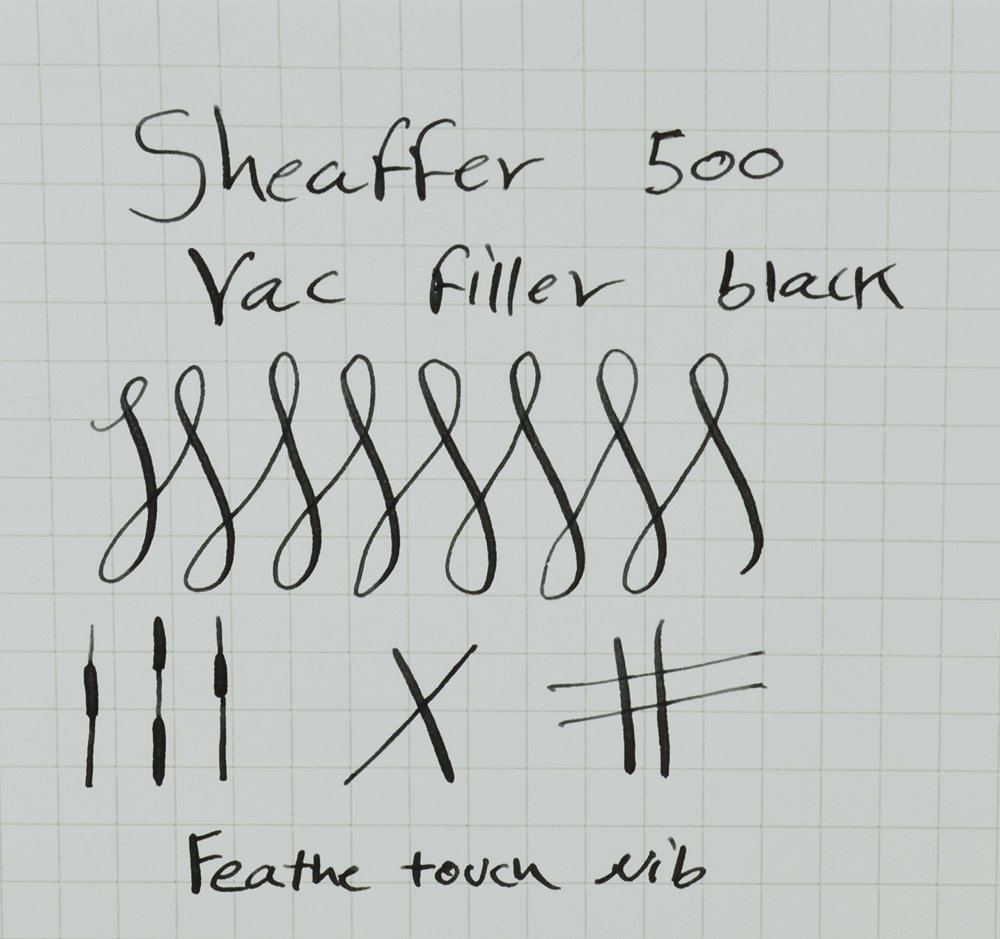 Sheaffer 500
Vac filler black
Feathe touch nib